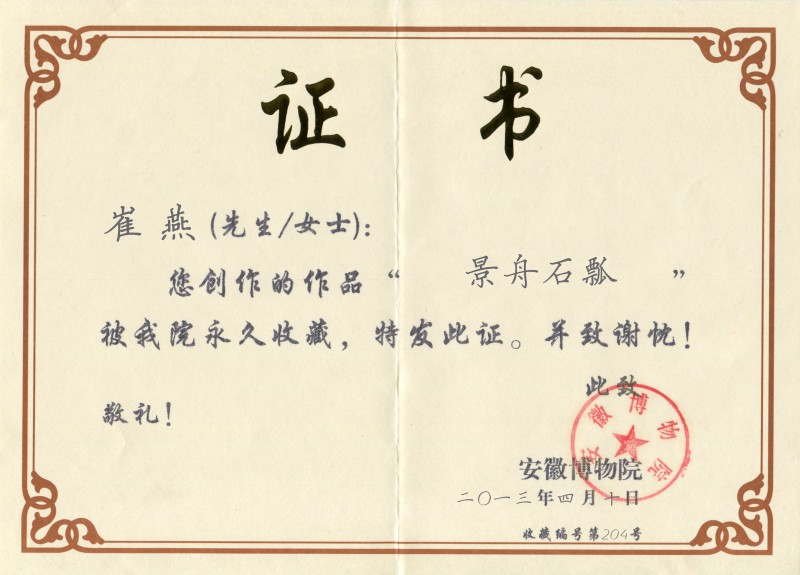 证书
崔燕(先生/女士):
您创作的作品“景舟石瓢”
被我院永久收藏，特发此证。并致谢忱！
此致
敬礼！
安徽博物院
安徽博物院
二〇一三年四月十日
收藏编号第204号